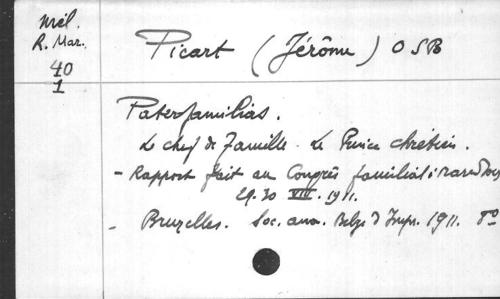 Mél.
R. Mar.
40
1
Picart (Jérôme) OSB
Paterfamilias.
Le chef de Famille. Le Prince chrétien.
- Rapport fait au Congrès familial
29.30 VII. 1911.
- Bruxelles. Soc. anon. Belge d'Impr. 1911. 8°